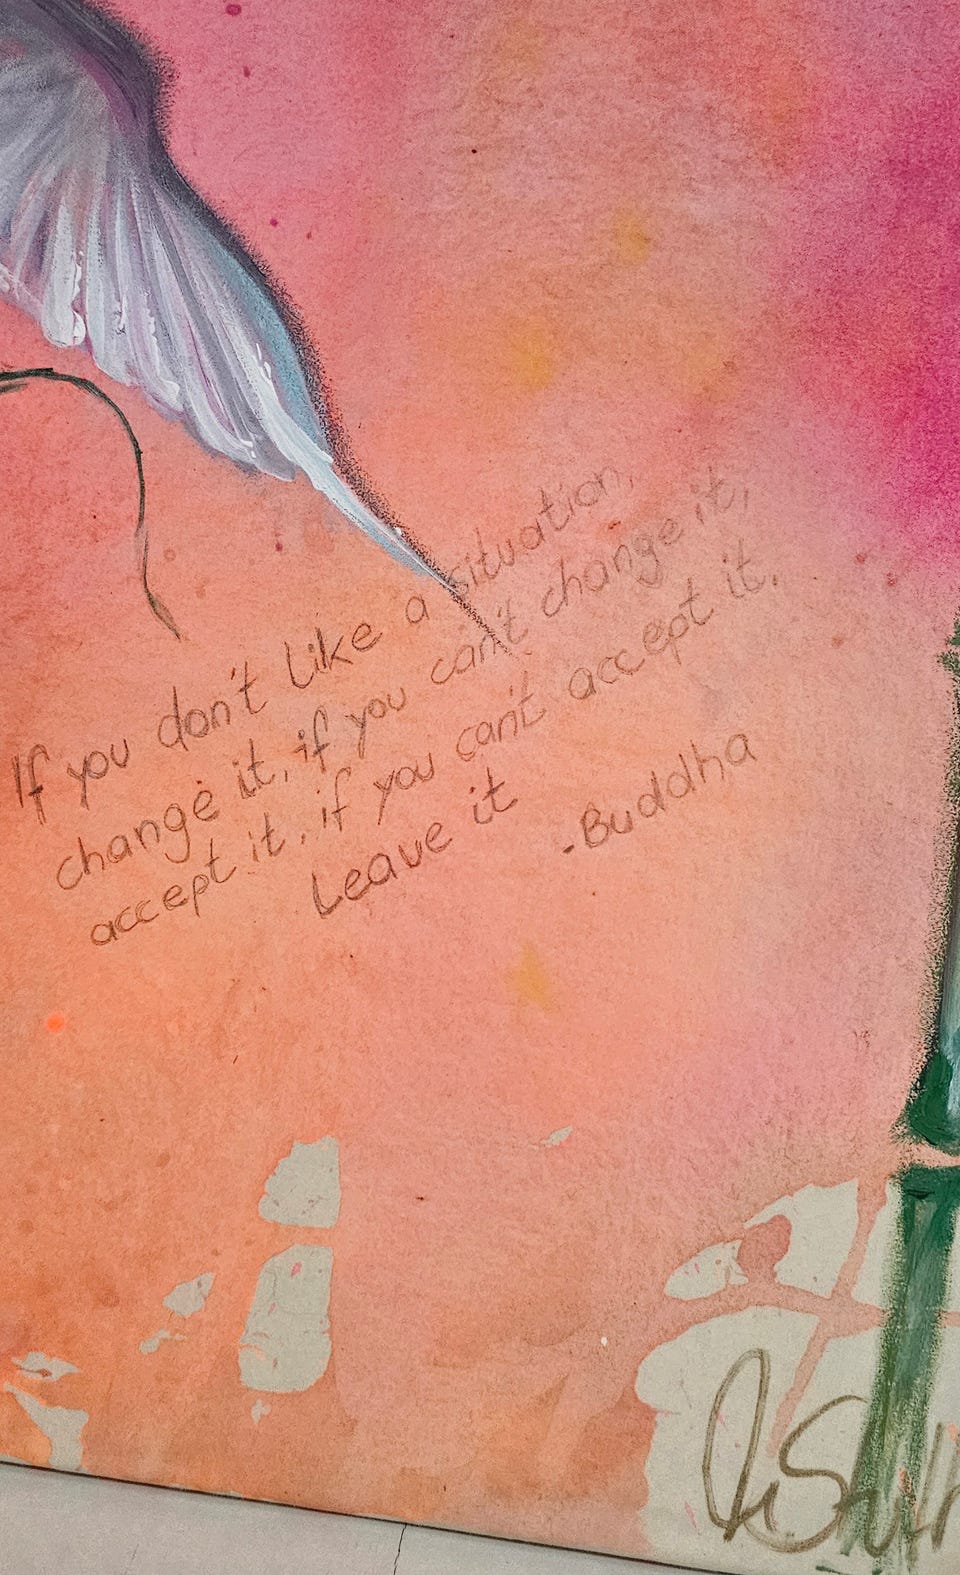 If you don't like a situation,
change it, if you can't change it,
accept it, if you can't accept it.
Leave it
-Buddha